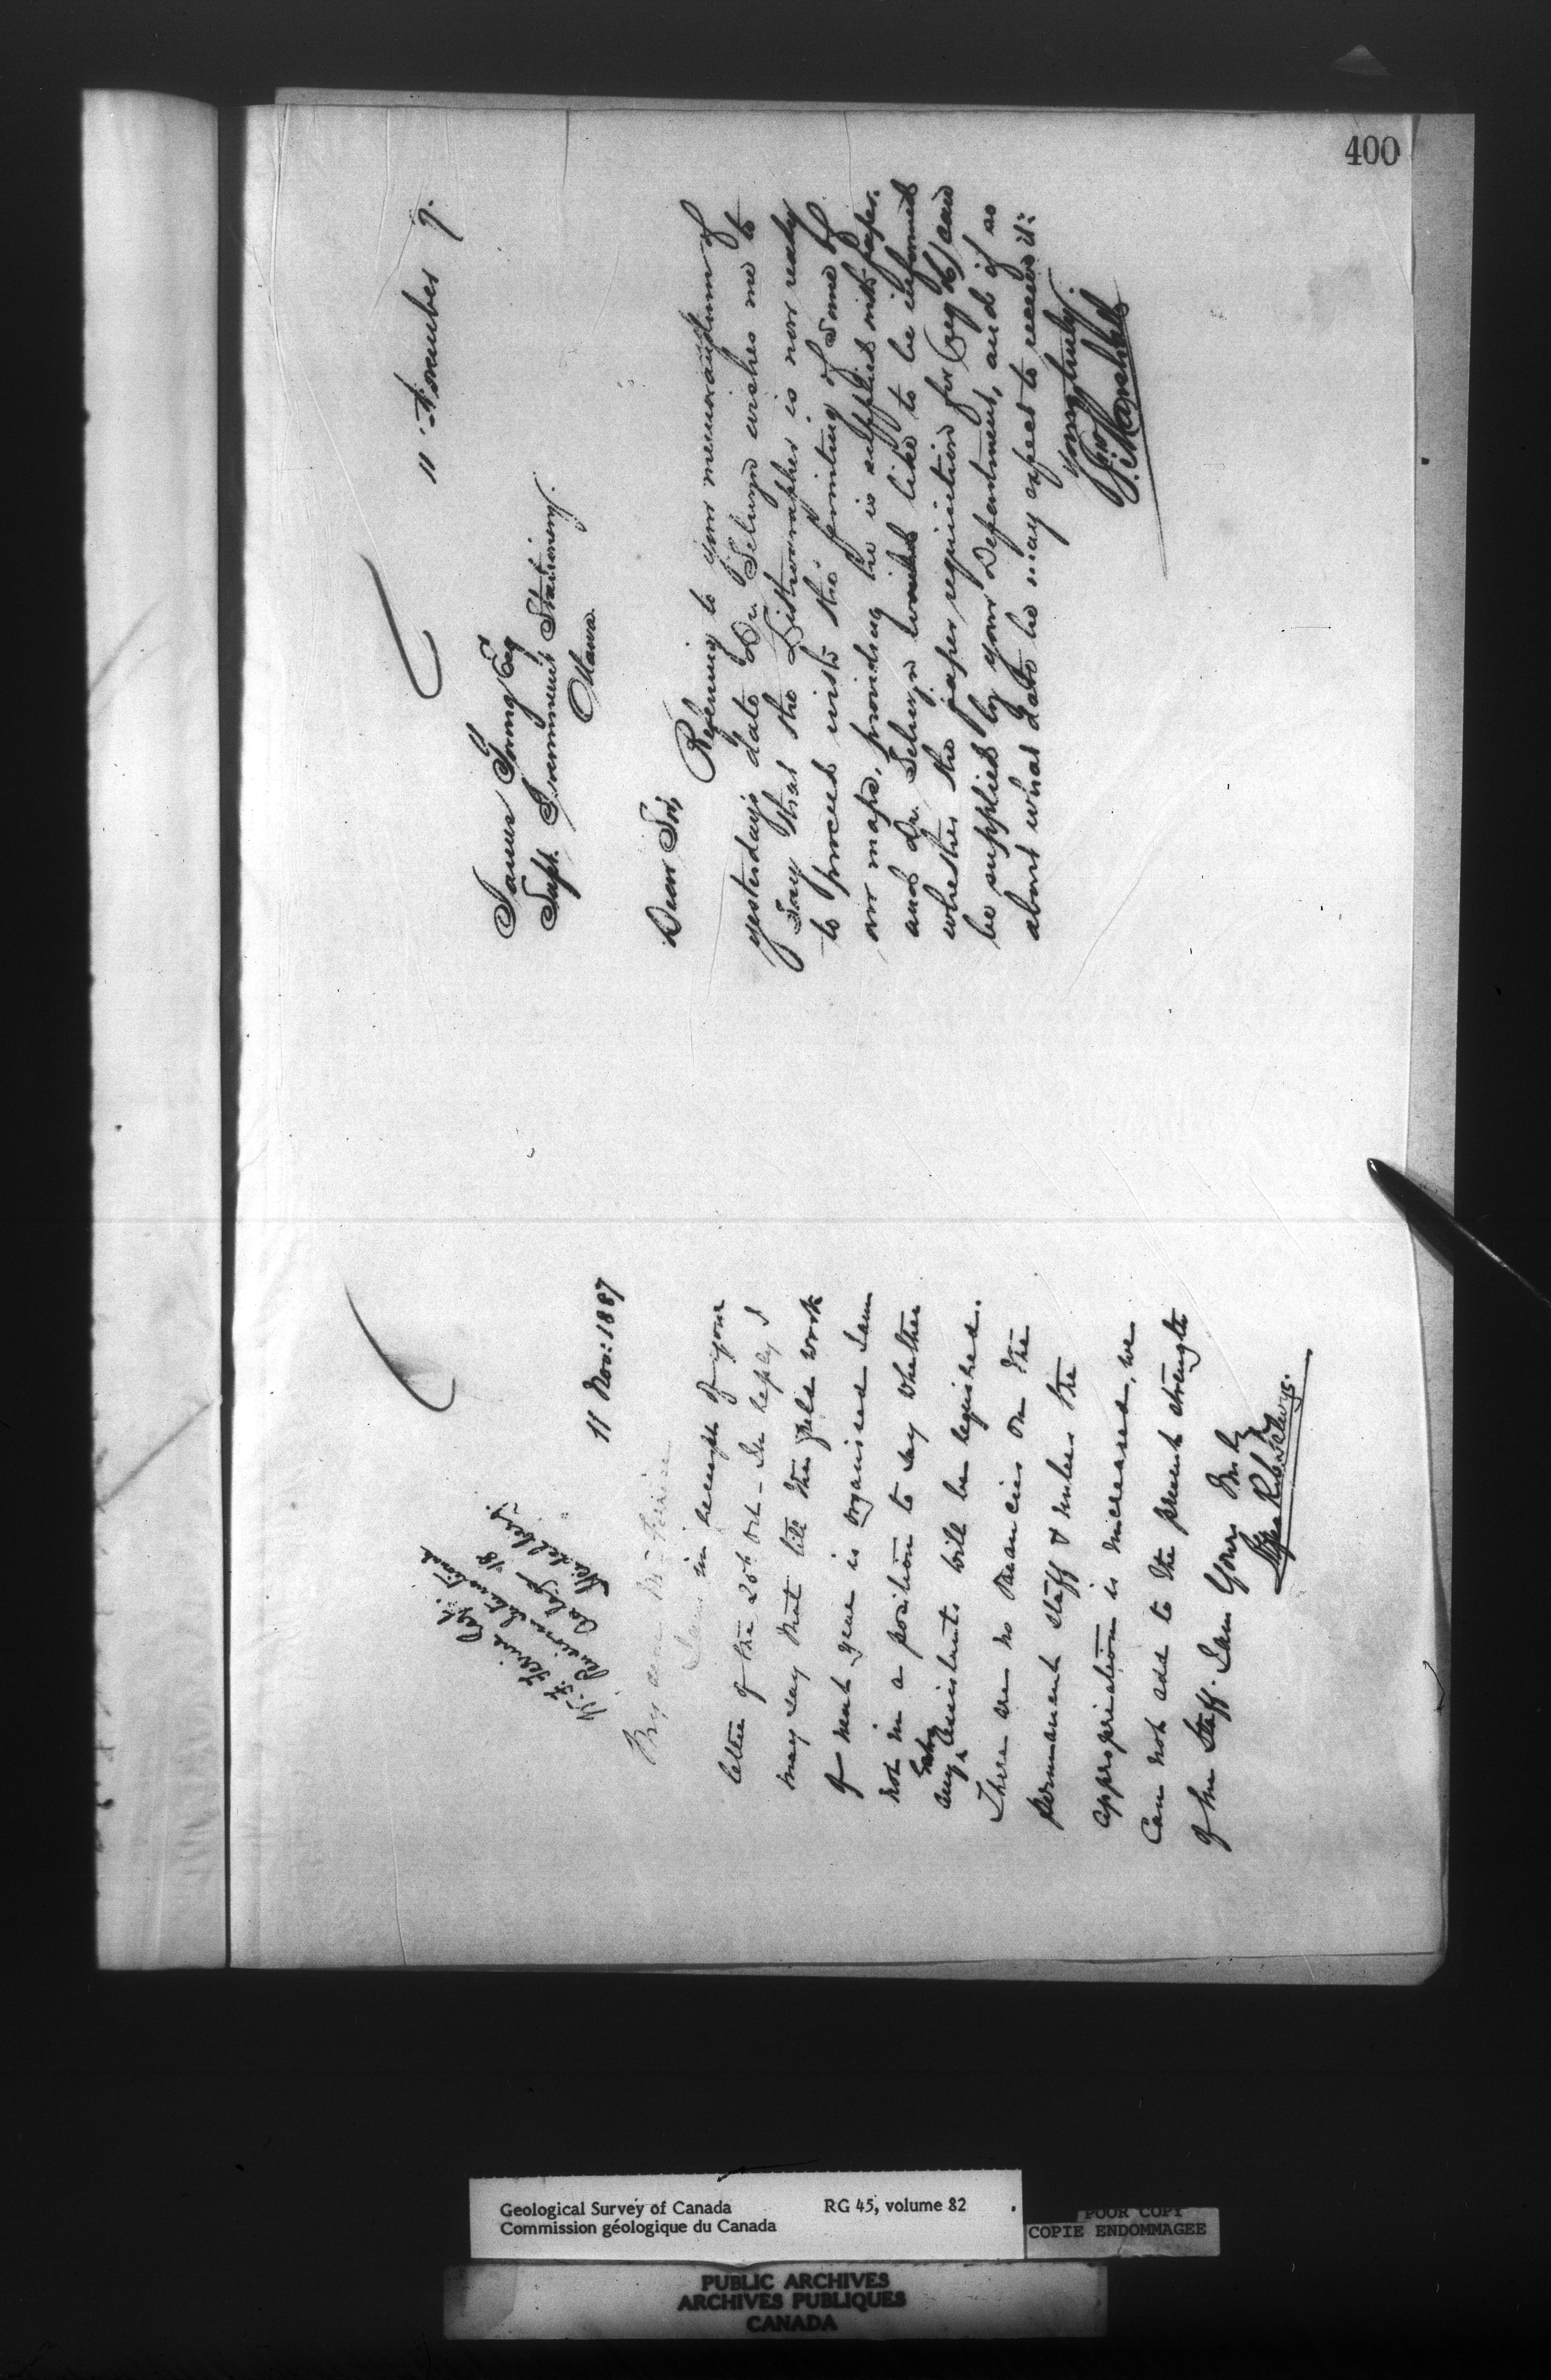 400
11 Nov: 1887
My dear Mr Ferrier
I am in receipt of your
letter of the 20th Oct - In reply I
may say that till the field work
of next year is organised I am
not in a position to say whether
any extra assistants will be required.
There are no vacancies on the
permanent staff & unless the
appropriation is increased, we
can not add to the present strength
of the Staff. I am Yours truly
11 November 7.
James Young Esq
Supt. Government Stationery.
Ottawa.
Dear Sir,
Refering to your memorandum of
yesterdays date Dr Selwyn wishes me to
say that the Lithographer is now ready
to proceed with the printing of some of
our maps, providing he is supplied with paper.
and Dr. Selwyn would like to be informed
whether the paper, requisition for can
be supplied by your Department, and if so
about what date he may expect to receive it:
Yours truly.
J. Marshall
Geological Survey of Canada RG 45, volume 82
Commission géologique du Canada
POOR COPY
COPIE ENDOMMAGEE
PUBLIC ARCHIVES
ARCHIVES PUBLIQUES
CANADA